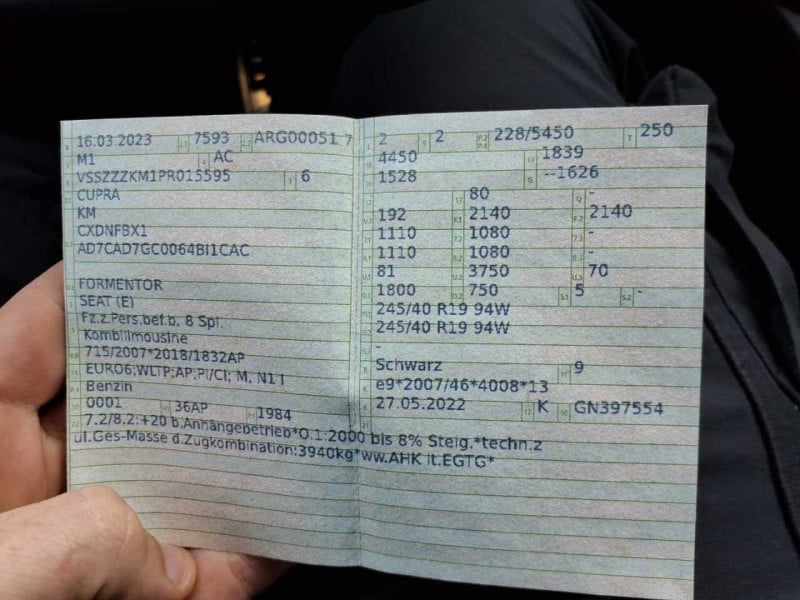 16.03.2023 7593 ARG00051 7
M1 AC
VSSZZZKM1PR015595 6
CUPRA
KM
CXDNFBX1
AD7CAD7GC0064BI1CAC
FORMENTOR
SEAT (E)
Fz.z.Pers.bef.b. 8 Spl.
Kombilimousine
715/2007*2018/1832AP
EURO6;WLTP;AP;PI/CI; M, N1 I
Benzin
0001 36AP 1984
2 2 228/5450 250
4450 1839
1528 --1626
80 -
192 2140 2140
1110 1080 -
1110 1080 -
81 3750 70
1800 750 5 -
245/40 R19 94W
245/40 R19 94W
-
Schwarz 9
e9*2007/46*4008*13
27.05.2022 K GN397554
7.2/8.2:+20 b.Anhängebetrieb*O.1:2000 bis 8% Steig.*techn.z
ul.Ges-Masse d.Zugkombination:3940kg*ww.AHK lt.EGTG*